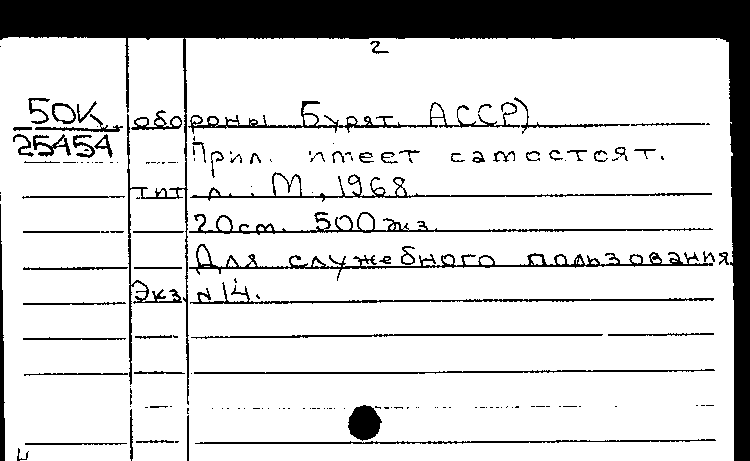 2
50К обороны Бурят. АССР).
25454 Прил. имеет самостоят.
тит. л.: М., 1968.
20см. 500экз.
Для служебного пользования.
Экз. N14.